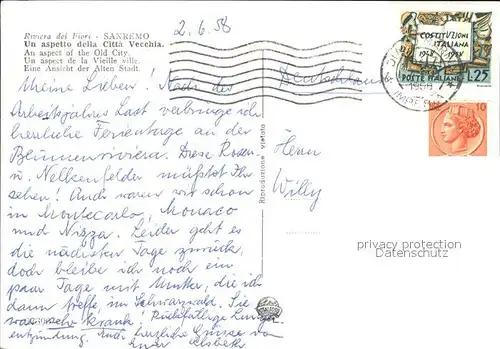 2.6.58
Riviera dei Fiori - SANREMO
Un aspetto della Città Vecchia.
An aspect of the Old City.
Un aspect de la Vieille ville.
Eine Ansicht der Alten Stadt.
COSTITUZIONE
ITALIANA
1948 1958
POSTE ITALIANE L.25
10
1958
Deutschland
Meine Lieben! Nach des
Arbeitsjahres Last verbringe ich
herrliche Ferientage an der
Blumenriviera. Diese Rosen-
u. Nelkenfelder müsstet Ihr
sehen! Auch waren wir schon
in Monte Carlo, Monaco
und Nizza. Leider geht es
die nächsten Tage zurück,
doch bleibe ich noch ein
paar Tage mit Mutter, die ich
dann treffe, im Schwarzwald. Sie
war sehr krank! Rückfällige Lungen-
entzündung. Euch herzliche Grüsse von
Herrn
Willy
Riproduzione vietata
privacy protection
Datenschutz